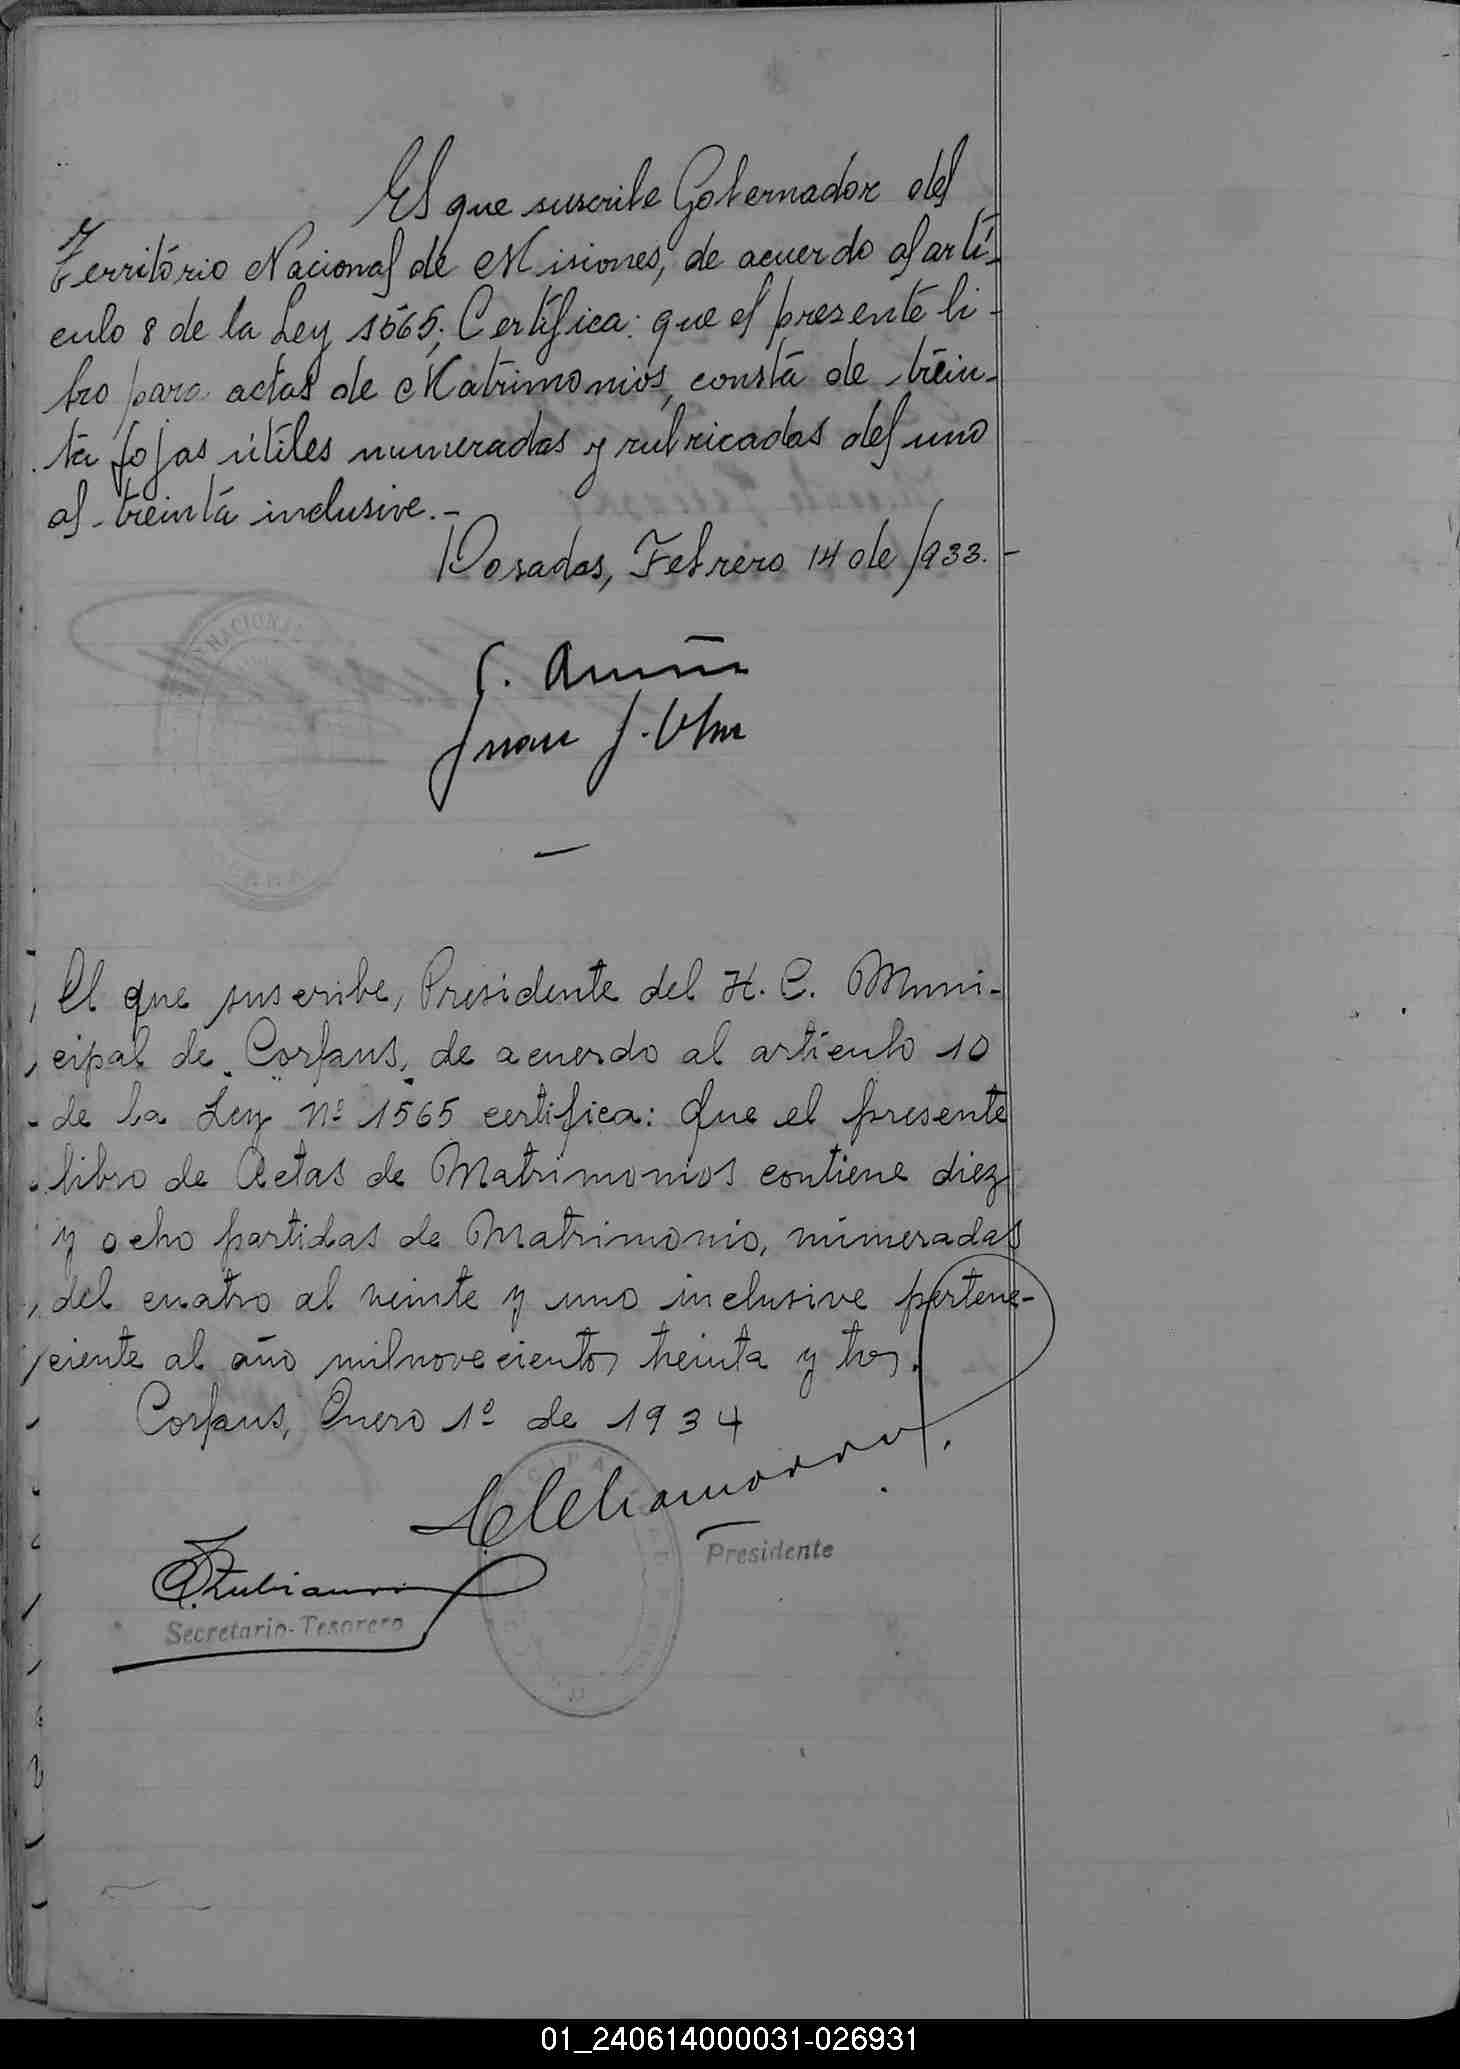 El que suscribe Gobernador del
Territorio Nacional de Misiones, de acuerdo al artí-
culo 8 de la Ley 1565; Certifica: que el presente li-
bro para actas de Matrimonios, consta de trein-
ta fojas útiles numeradas y rubricadas del uno
al treinta inclusive.-
Posadas, Febrero 14 de 1933.-
Juan J.
El que suscribe, Presidente del H. C. Muni-
cipal de Corpus, de acuerdo al artículo 10
de la Ley Nº 1565 certifica: Que el presente
libro de Actas de Matrimonios contiene diez
y ocho partidas de Matrimonio, númeradas
del cuatro al veinte y uno inclusive pertene-
ciente al año milnovecientos treinta y tres.
Corpus, Enero 1º de 1934
Presidente
Secretario-Tesorero
01_240614000031-026931